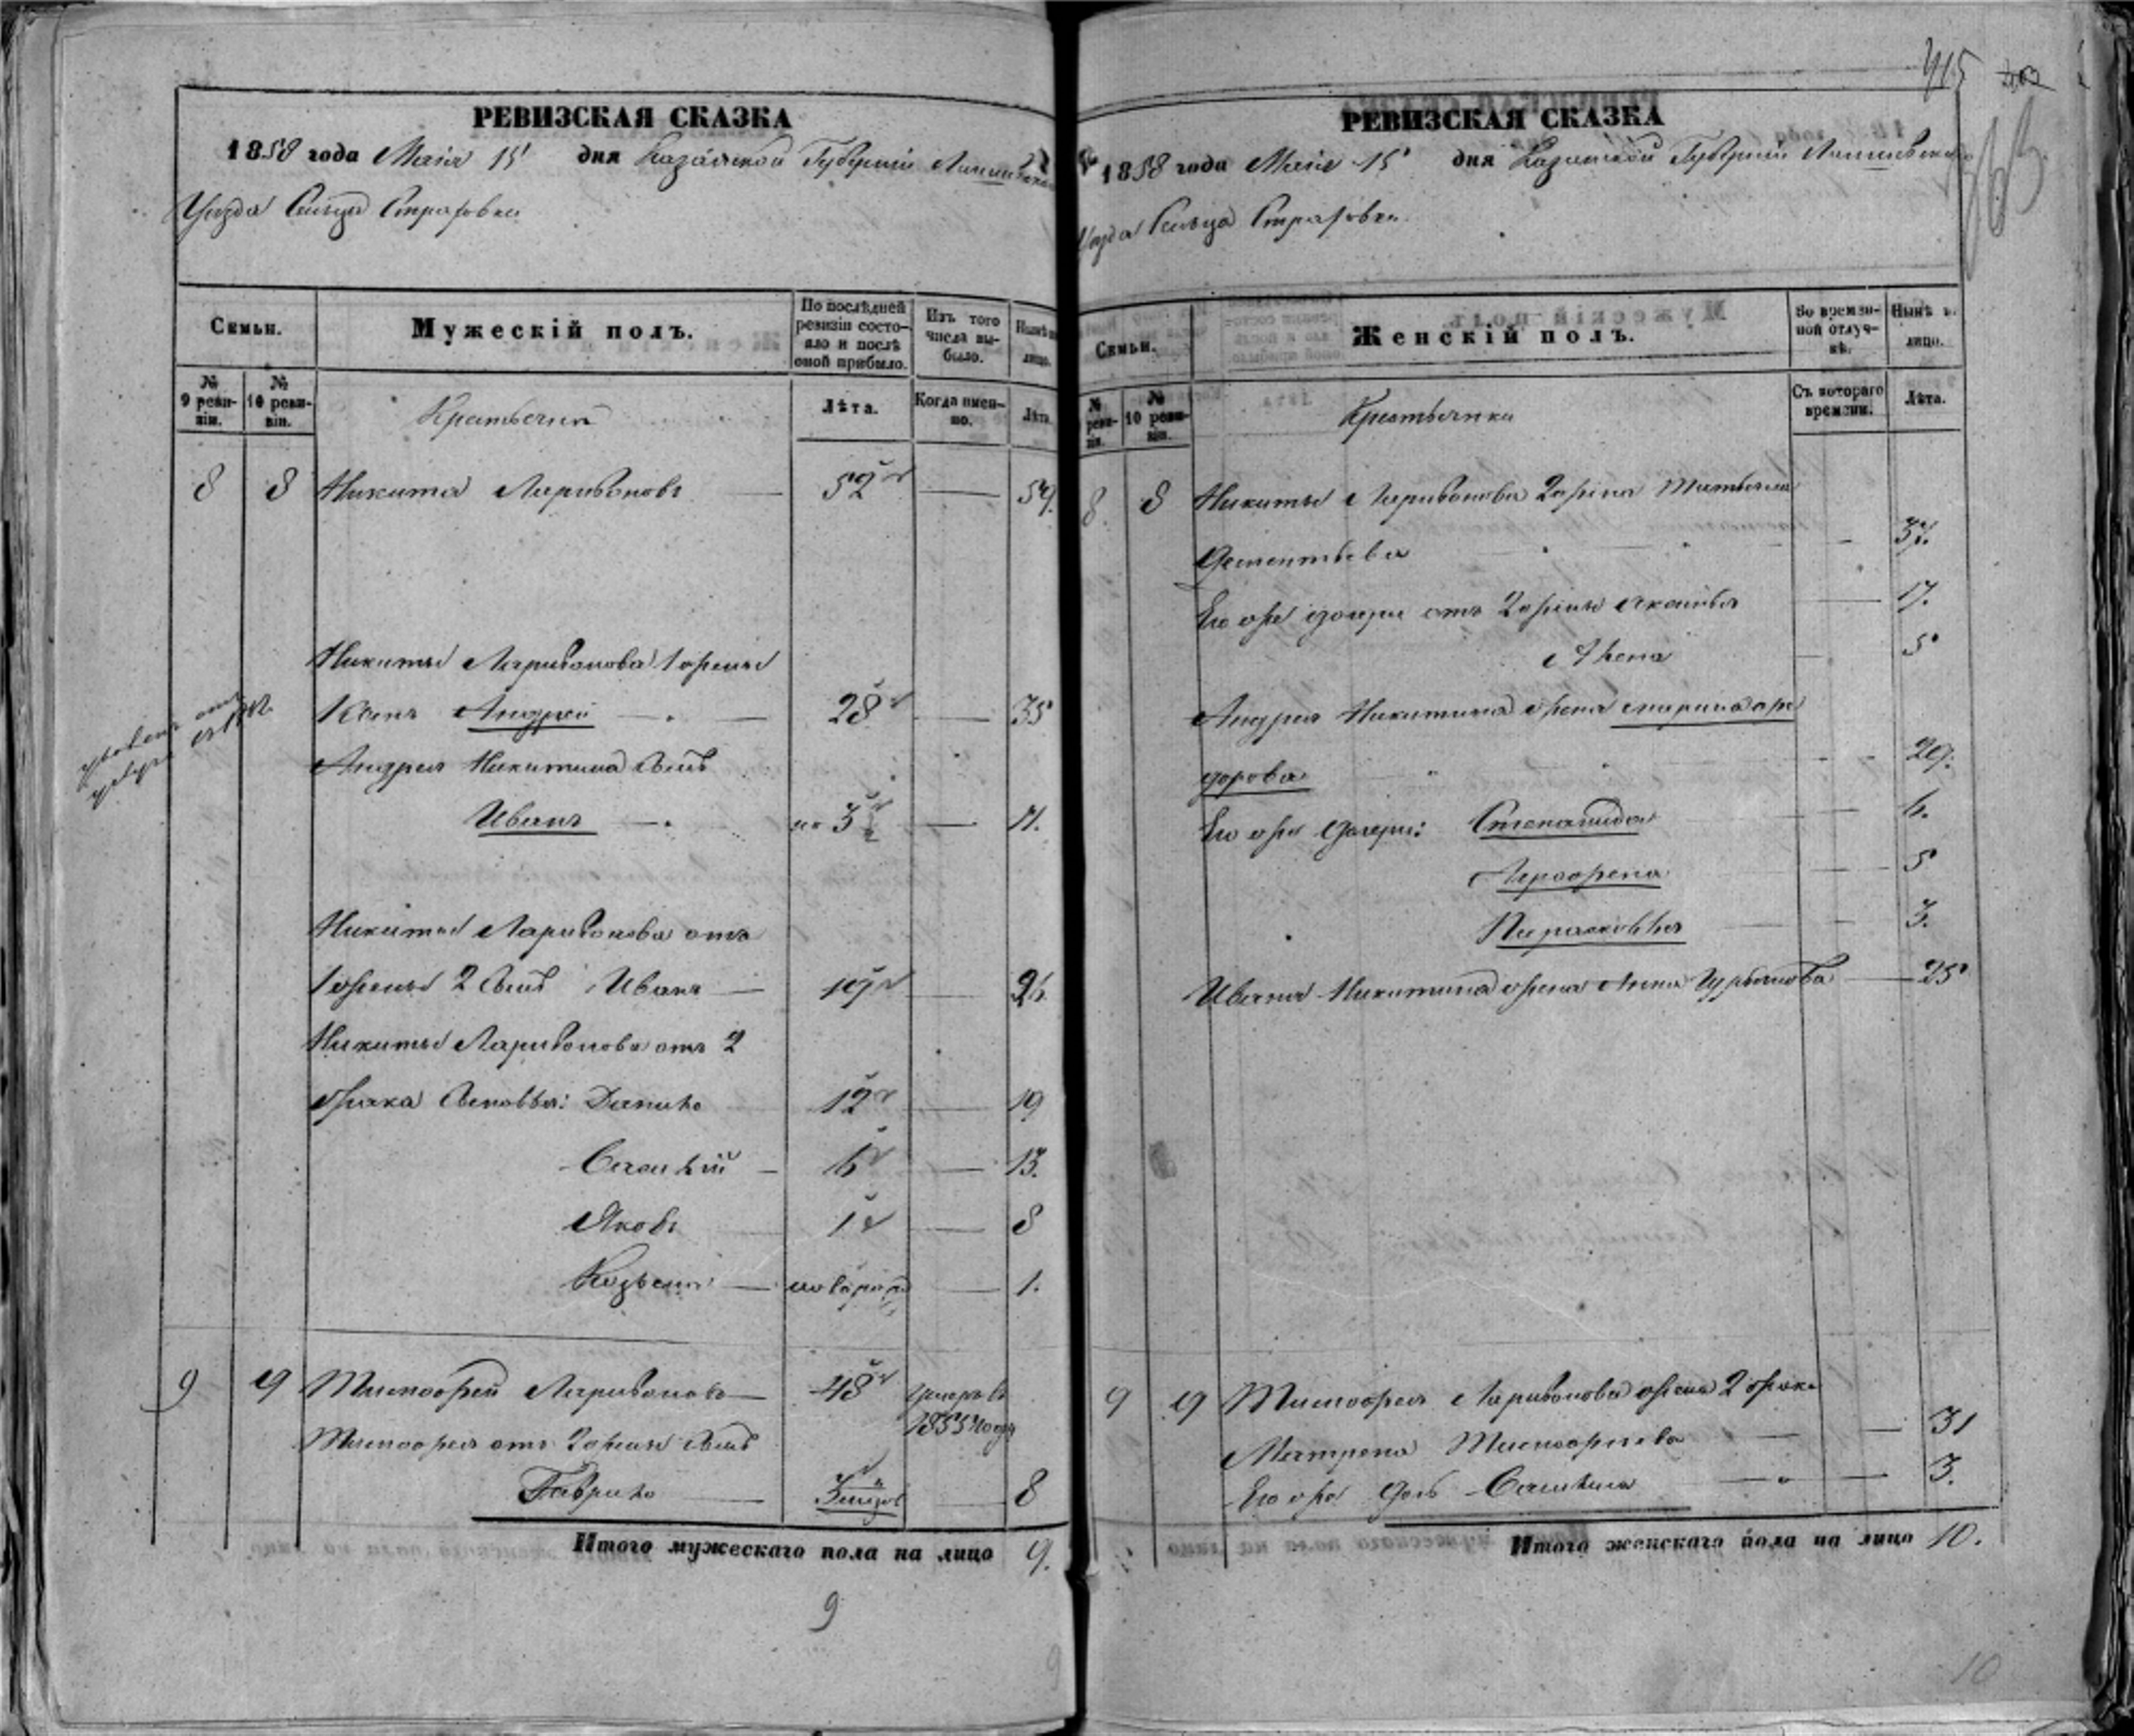 415
РЕВИЗСКАЯ СКАЗКА
1858 года Маія 15 дня Казанской Губерніи
Уѣзда Сельца Страховки
Семьи.
Мужескій полъ.
По послѣдней ревизіи состояло и послѣ оной прибыло.
Изъ того числа выбыло.
Нынѣ на лицо.
№ 9 ревизіи.
№ 10 ревизіи.
Крестьянинъ
Лѣта.
Когда именно.
Лѣта.
8 8 Никита Ларивоновъ 52 — 59.
Никиты Ларивонова 1 жены
сынъ Андрей — 28 — 35
Андрея Никитина сынъ
Иванъ — 3 — 11.
Никиты Ларивонова отъ
1 жены 2 сынъ Иванъ — 19 — 26.
Никиты Ларивонова отъ 2
брака сыновья: Данило 12 — 19
6 — 13.
Яковъ 1 — 8
Козьма — новорож — 1.
9 9 Тимофей Ларивоновъ — 48 умеръ въ
1855 годѣ
Тимофея отъ 2 жены сынъ
Гаврило — 3 — 8
Итого мужескаго пола на лицо 9.
9
РЕВИЗСКАЯ СКАЗКА
1858 года Маія 15 дня Казанской Губерніи
Уѣзда Сельца Страховки
Семьи.
Женскій полъ.
Во временной отлучкѣ.
Нынѣ на лицо.
№ 9 ревизіи.
№ 10 ревизіи.
Крестьянки
Съ котораго времени.
Лѣта.
8 8 Никиты Ларивонова 2 жена Татьяна
Дементьева — 37.
Его же дочери отъ 2 жены — 17.
— 5
Андрея Никитина жена Марина Фе
дорова — 29.
Его же дочери: Степанида — 6.
Аграфена — 5
Парасковья — 3.
Ивана Никитина жена Анна — 25
9 9 Тимофея Ларивонова жена 2 брака
Матрена Тимофеева — 31
Его же дочь — 3.
Итого женскаго пола на лицо 10.
10